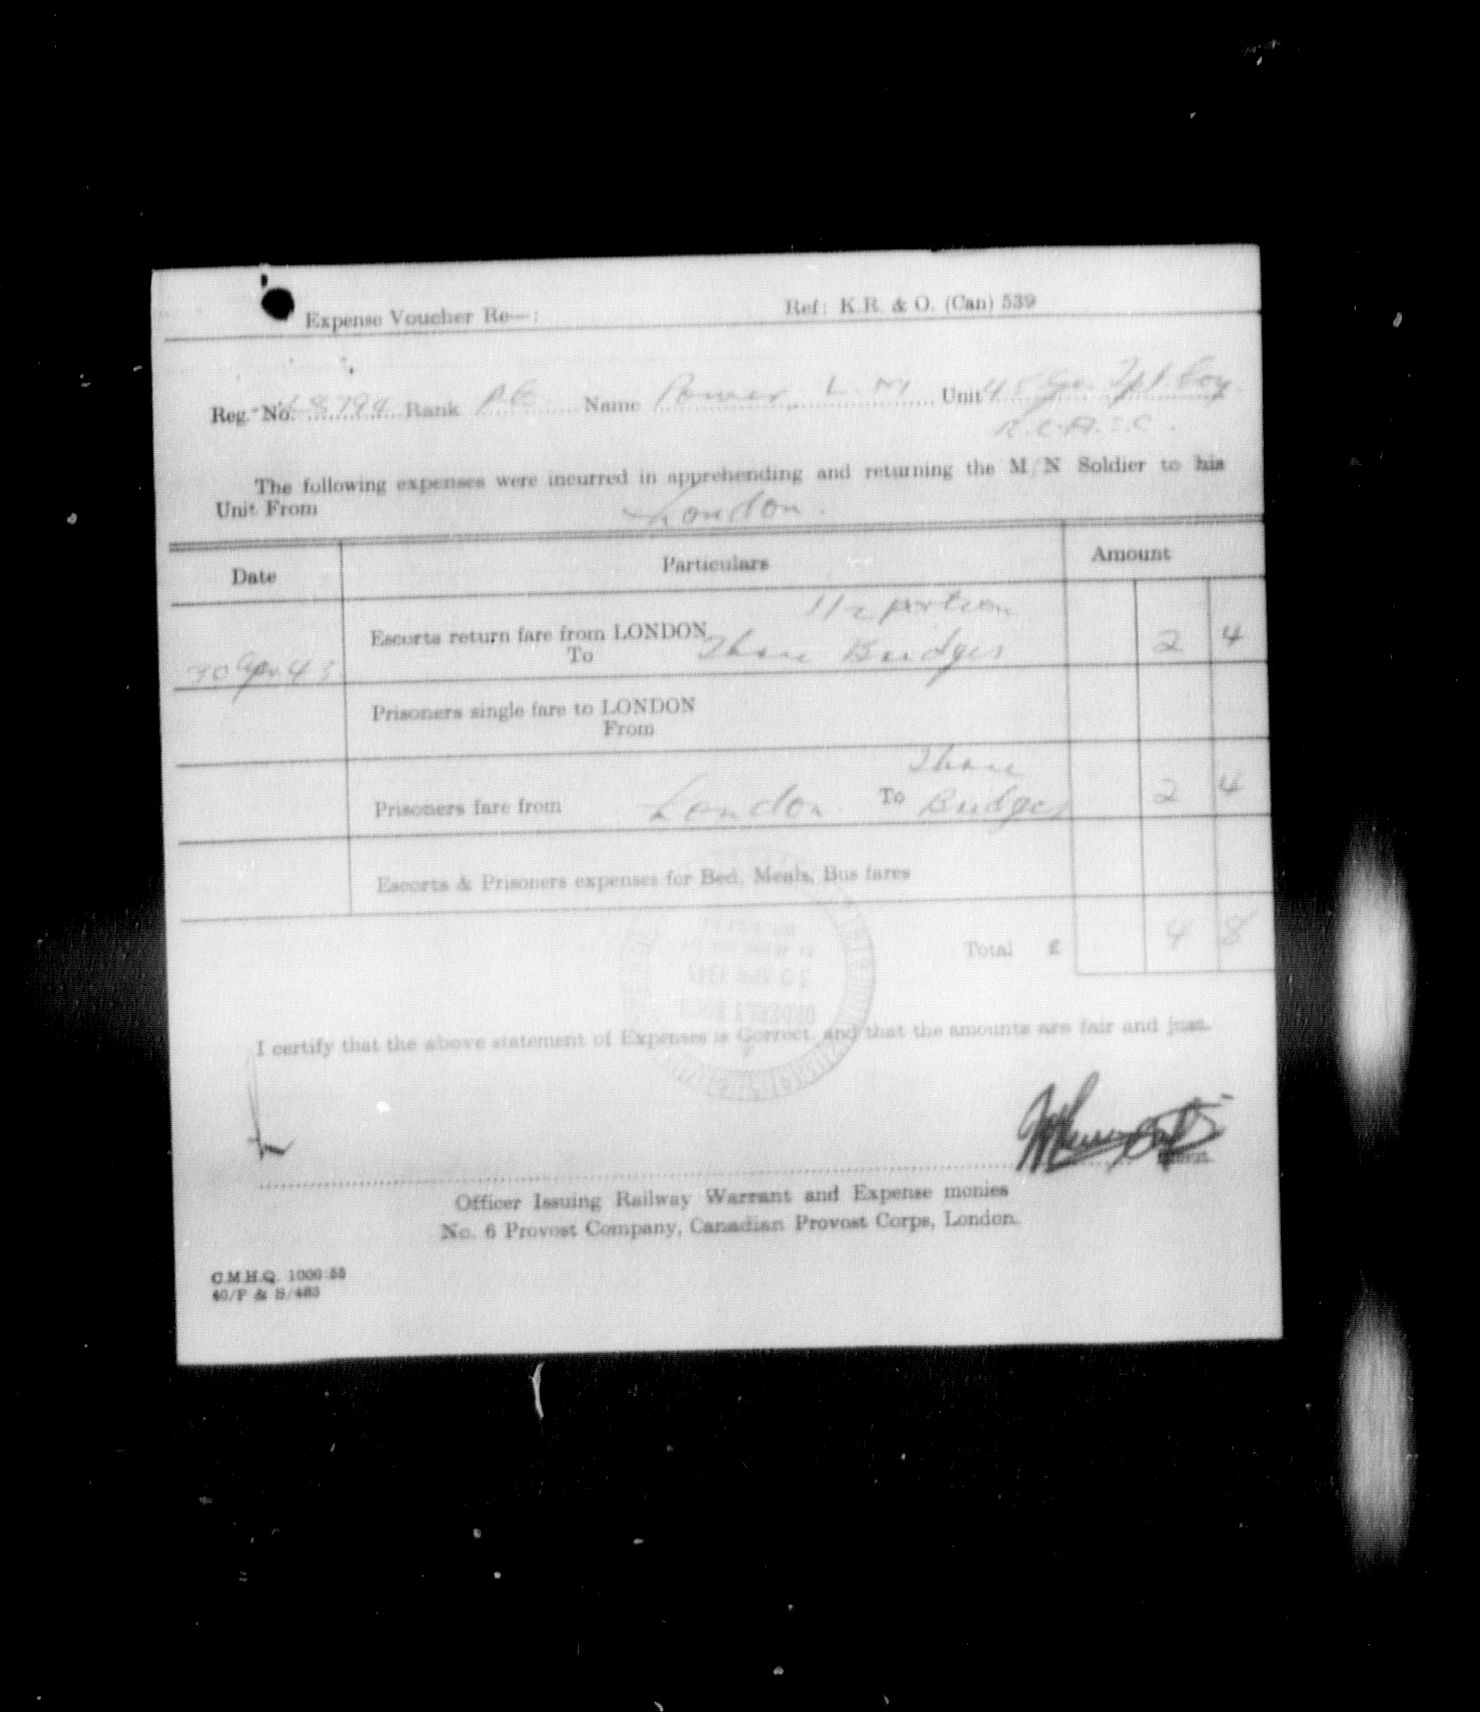 Expense Voucher Re—: Ref: K.R. & O. (Can) 539
Reg. No. Rank Pte Name Power, L. M. Unit Tpt. Coy.
R.C.A.S.C.
The following expenses were incurred in apprehending and returning the M/N Soldier to his
Unit From London.
Date Particulars Amount
1/2 portion
Escorts return fare from LONDON
30 Apr. 43 To Three Bridges 2 4
Prisoners single fare to LONDON
From
Three
Prisoners fare from London To Bridges 2 4
Escorts & Prisoners expenses for Bed, Meals, Bus fares
Total £ 4 8
I certify that the above statement of Expenses is Correct, and that the amounts are fair and just.
Officer Issuing Railway Warrant and Expense monies
No. 6 Provost Company, Canadian Provost Corps, London.
C.M.H.Q. 1000/55
40/P & S/483